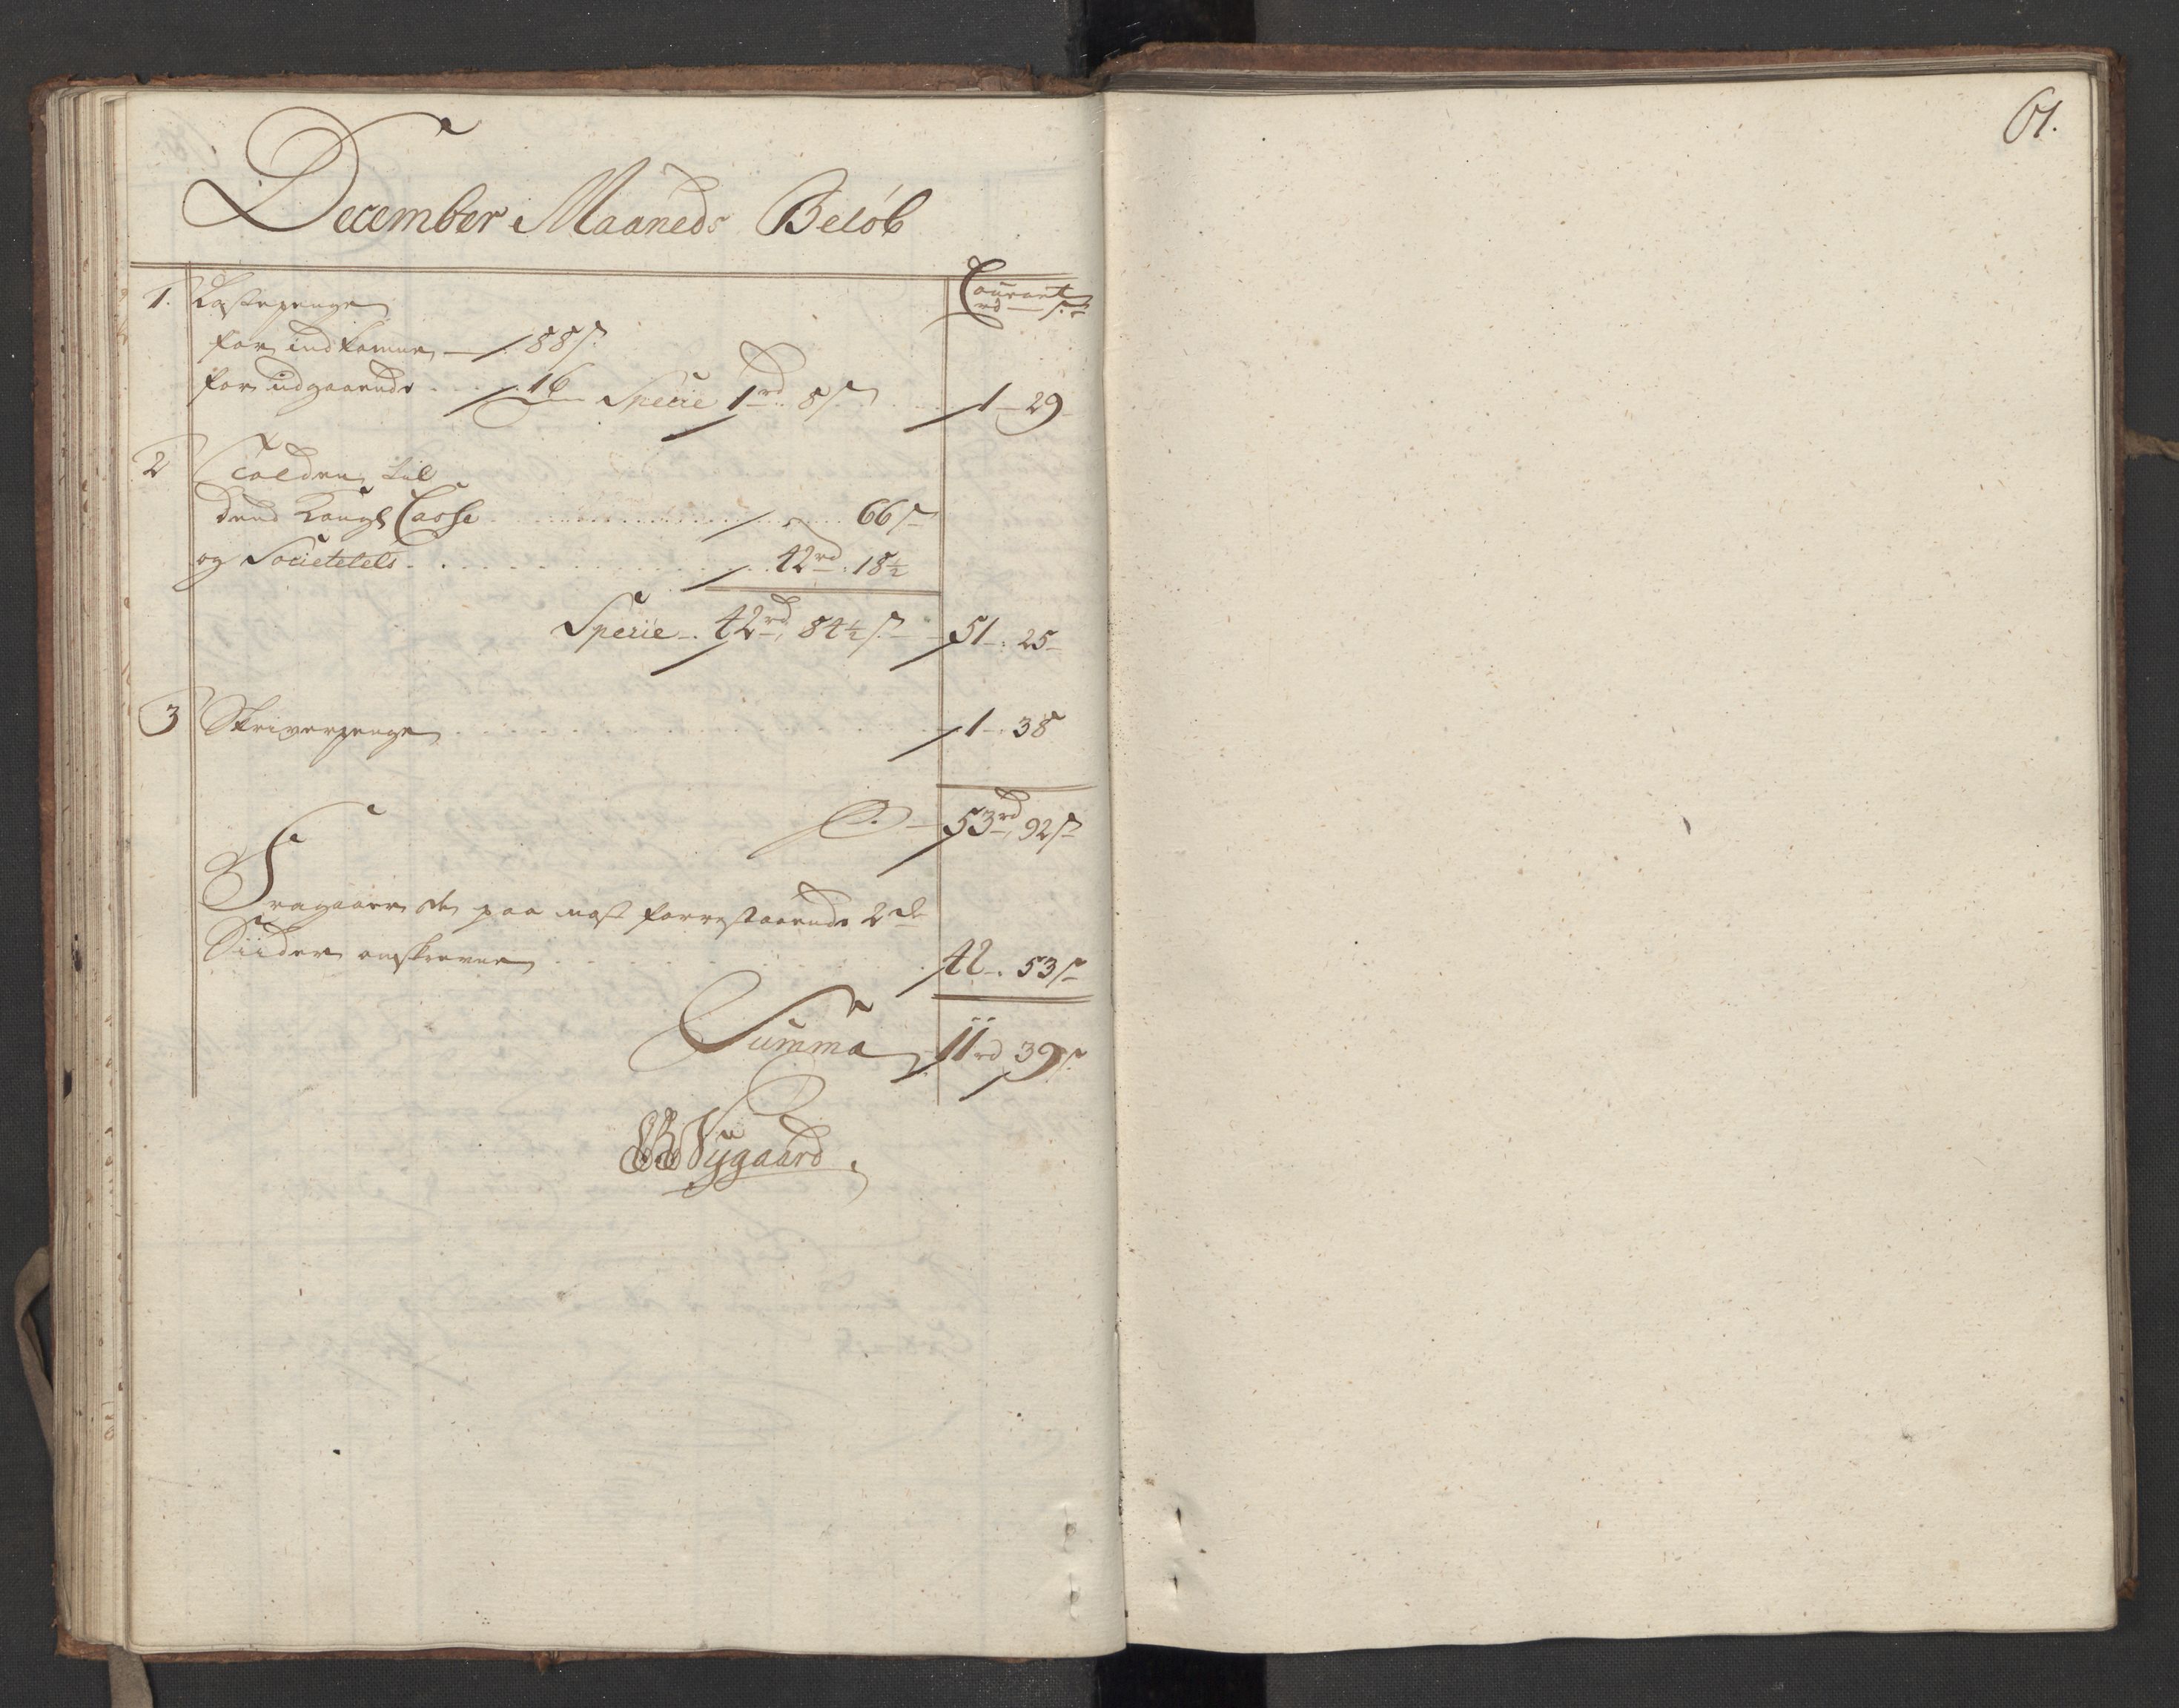 61.
December Maaneds Beløb
Courant
rd ß
1. Lastepenge
for indkomne 88 ß
for udgaaende 16 Specie 1 rd 8 ß 1 - 29
2 Tolden til
dend Kongl Casse 66 ß
og Societetets 42 rd 18 1/2
Specie 42 rd 84 1/2 ß 51 - 25
3 Skriverpenge 1 - 38
53 rd 92 ß
Fragaaer de paa nest forrestaaende 2de
Siider anskrevne 42 - 53 ß
Summa 11 rd 39 ß
Nygaard